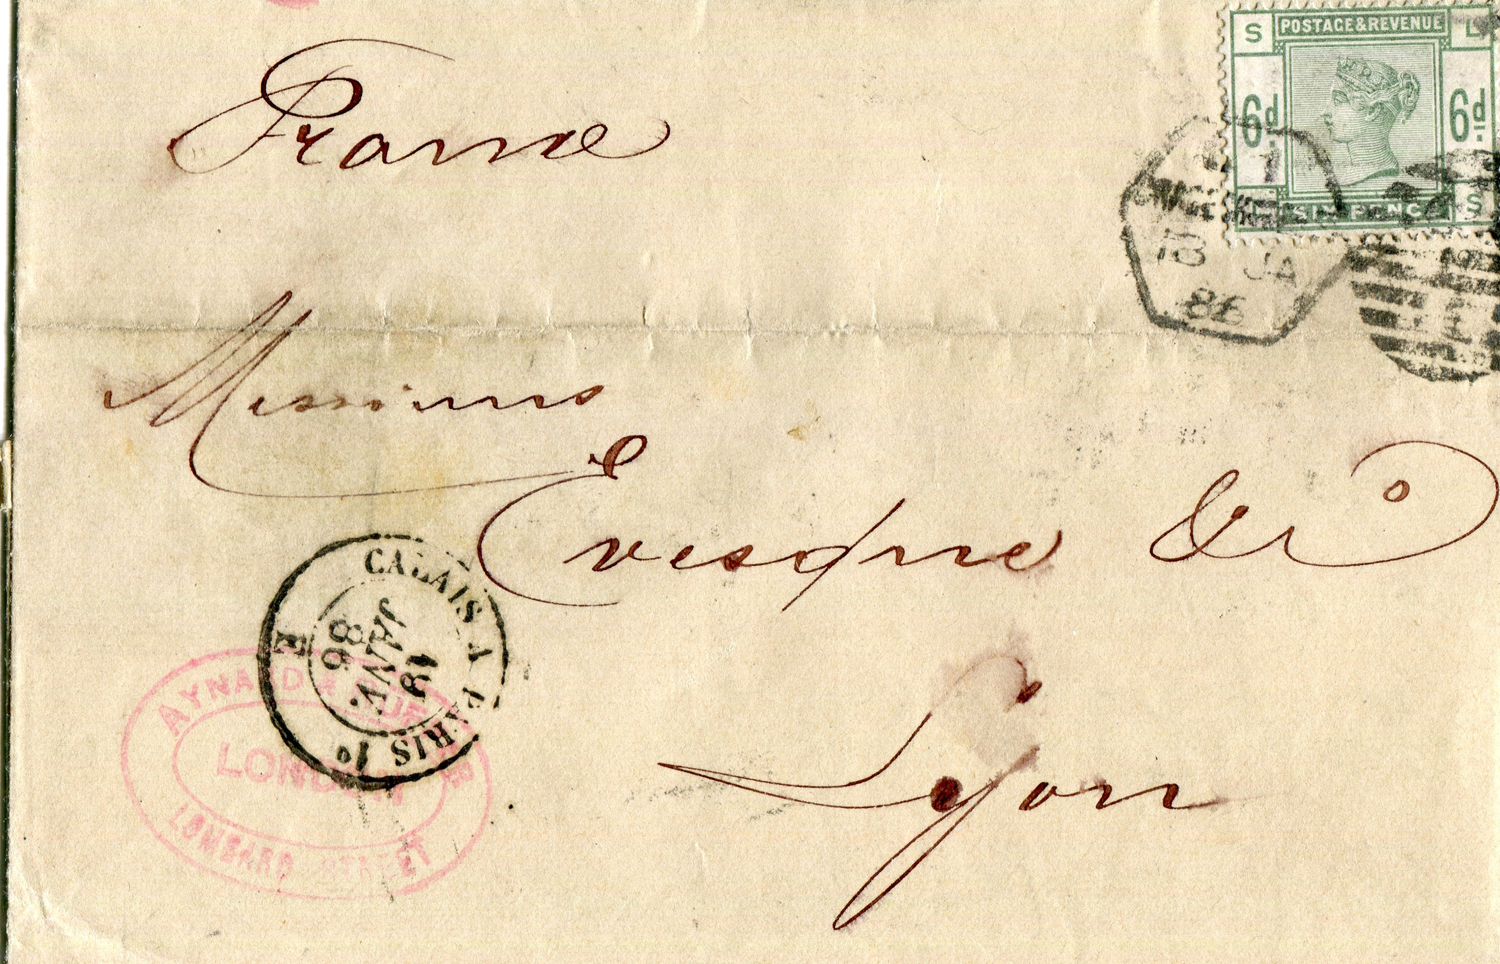 S POSTAGE & REVENUE L
6d 6d
SIX PENCE S
France
JA
86
Messieurs
Evesque & Cº
CALAIS A PARIS 1º
E
18
JANV.
86
AYNARD &
LONDON
LOMBARD STREET
Lyon